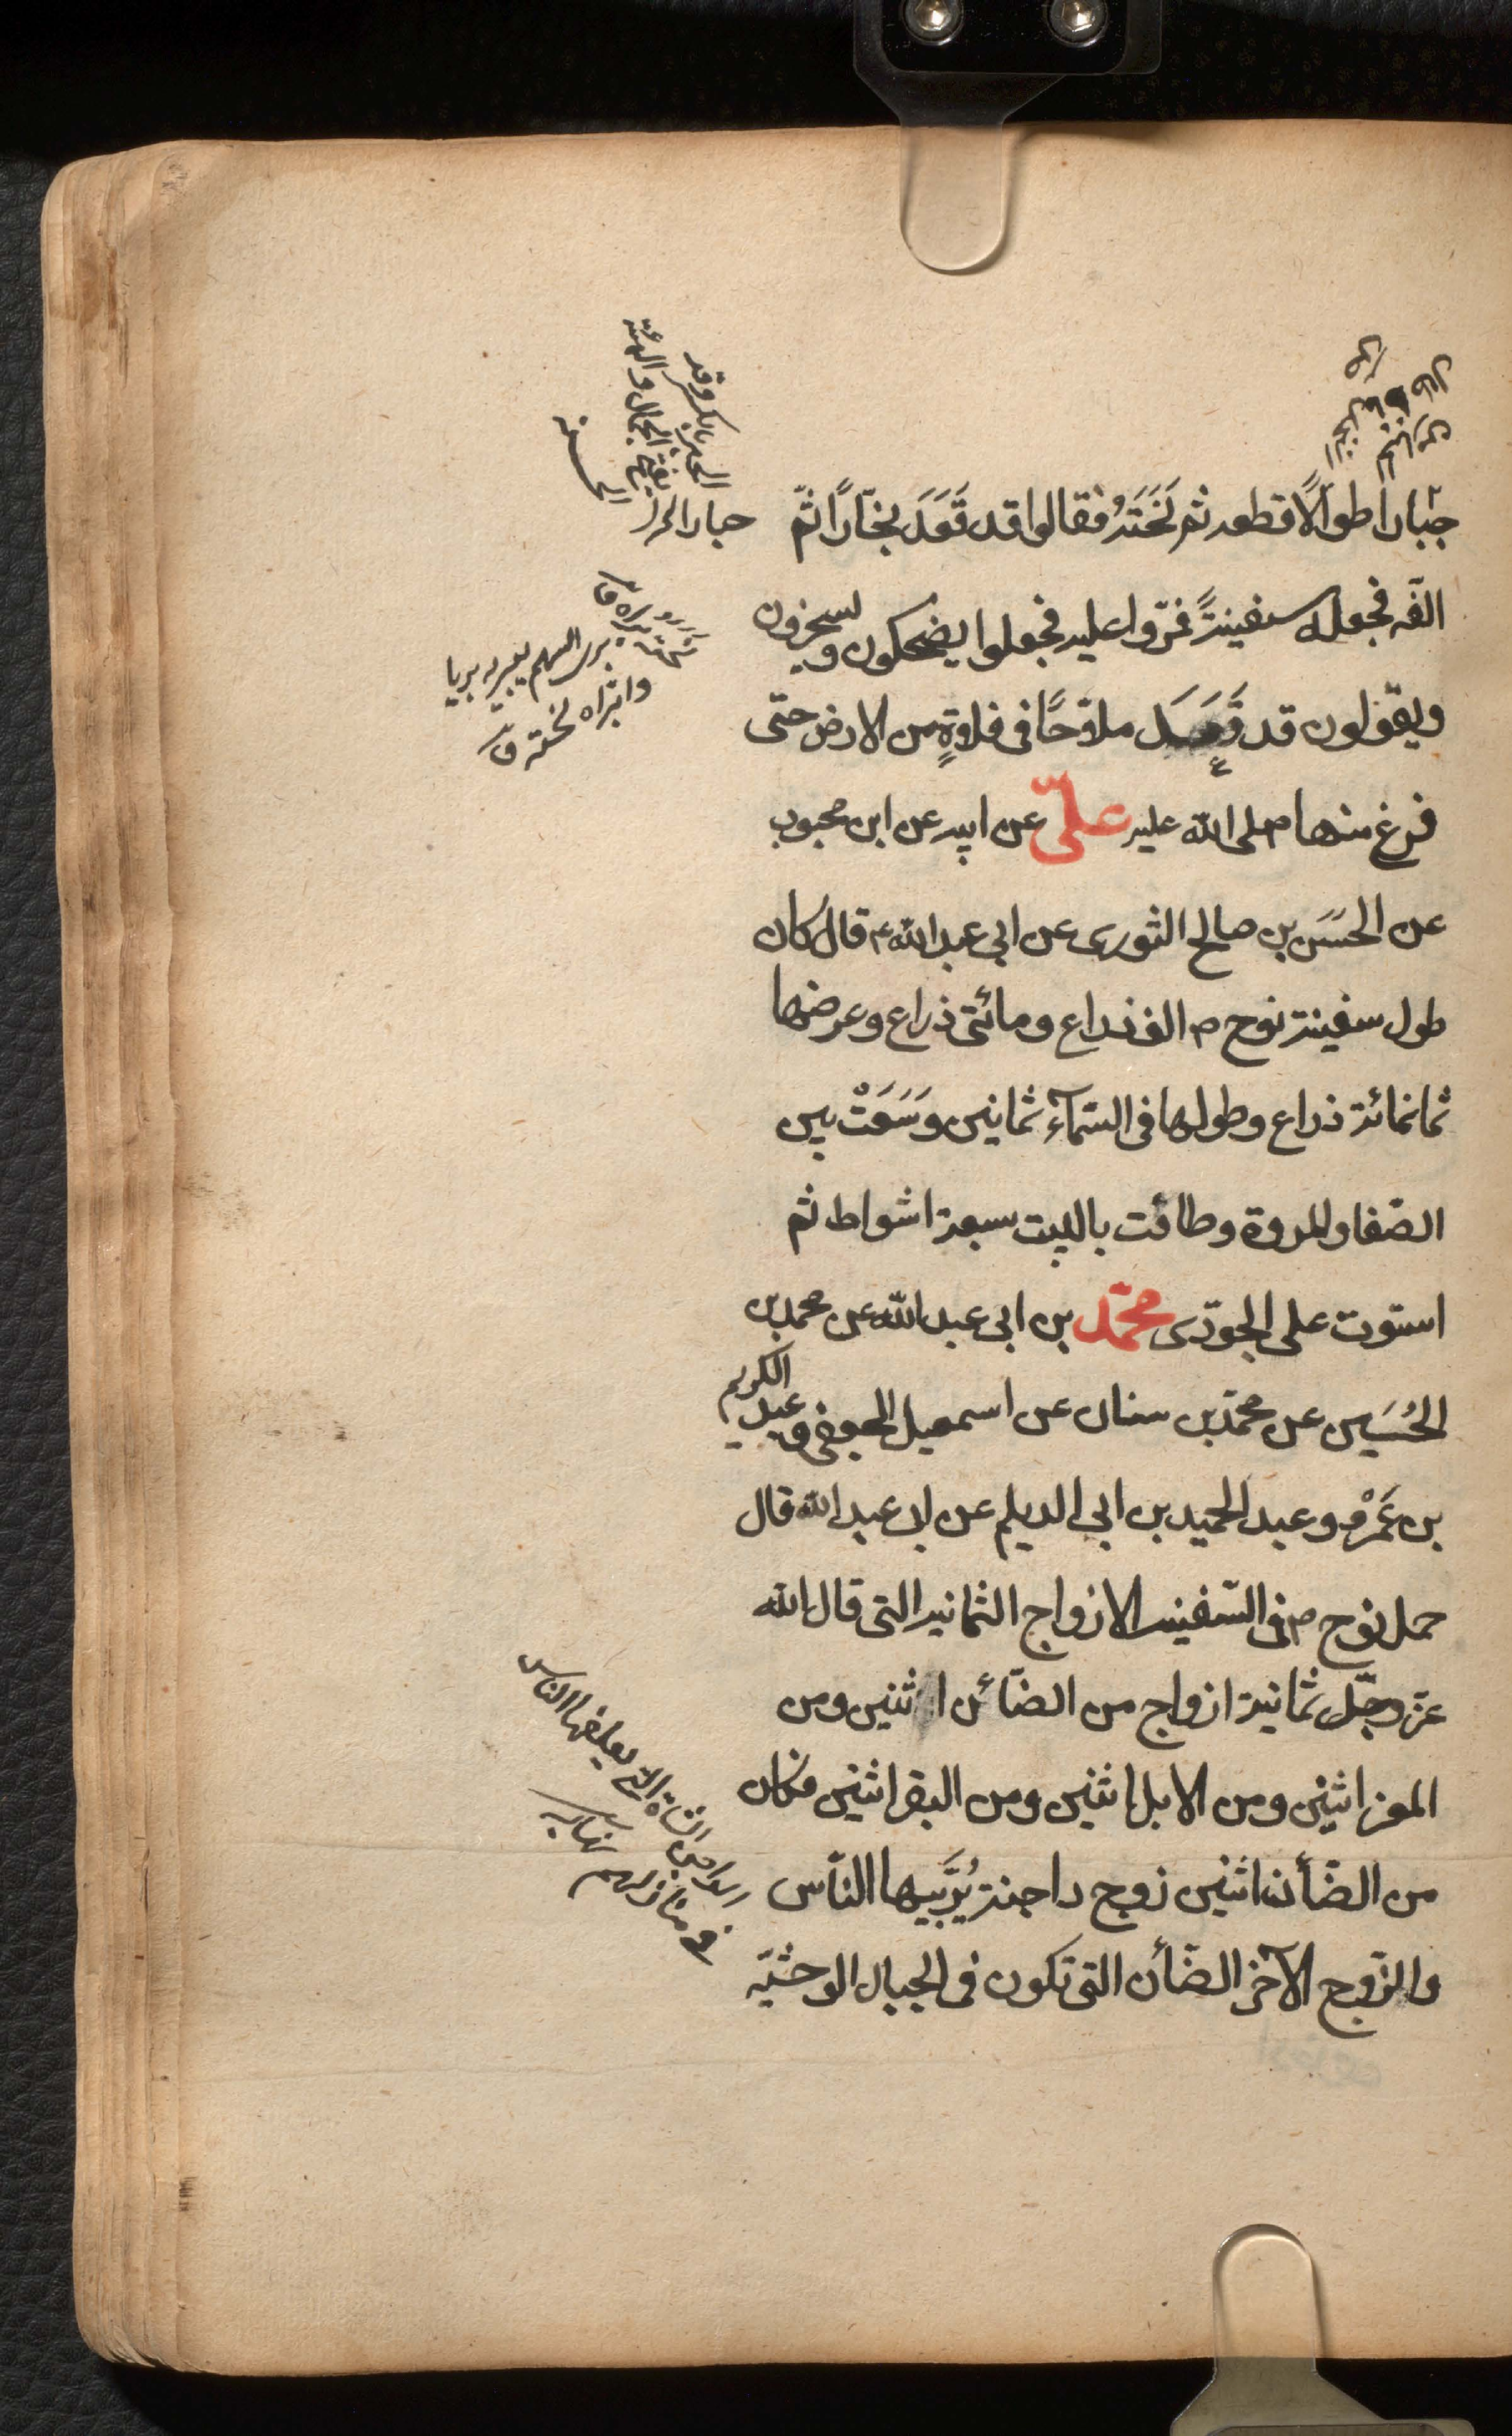 جبّارًا طوالًا فقطعه ثم نَحَتَهُ فقالوا قد قَعَدَ نجّارًا ثمّ
الّفه فجعله سفينةً فمرّوا عليه فجعلوا يضحكون ويسخرون
ويقولون قد قَعَدَ ملاّحًا فى فلاةٍ من الارض حتّى
فرغ منها صلى الله عليه علىّ عن ابيه عن ابن محبوب
عن الحَسَن بن صالح الثورى عن ابى عبد الله ع قال كان
طول سفينة نوح ع الف ذراع ومائتى ذراع وعرضها
ثمانمائة ذراع وطولها فى السّمآء ثمانين وسَعَتْ بين
الصّفا والمروة وطافت بالبيت سبعة اشواط ثم
استوت على الجودّى محمّد بن ابى عبد الله عن محمد بن
الحُسَين عن محمّد بن سنان عن اسمعيل الجعفى وعبد الكريم
بن عَمْرو وعبد الحميد بن ابى الديلم عن ابى عبد الله قال
حمل نوح ع فى السّفينه الازواج الثمانيه التى قال الله
عزّ وجلّ ثمانية ازواج من الضّائن اثنين ومن
المعز اثنين ومن الابل اثنين ومن البقر اثنين فكان
من الضّأن اثنين زوج داجنة يُرَبّيها النّاس
والزّوج الآخر الضّأن التى تكون فى الجبال الوحشيّه
برى السهم يبريه بريا
وابتراه نحته ق
الدواجن الشاة التى يعلفها الناس
فى منازلهم نهايه